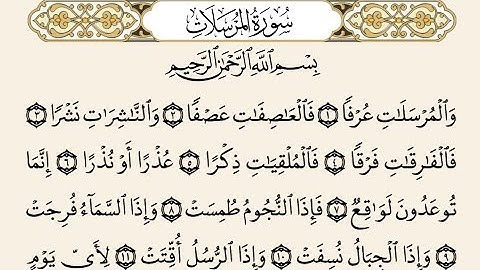 سُورَةُ المُرْسَلَات
بِسْمِ اللَّهِ الرَّحْمَٰنِ الرَّحِيمِ
وَالْمُرْسَلَاتِ عُرْفًا ١ فَالْعَاصِفَاتِ عَصْفًا ٢ وَالنَّاشِرَاتِ نَشْرًا ٣
فَالْفَارِقَاتِ فَرْقًا ٤ فَالْمُلْقِيَاتِ ذِكْرًا ٥ عُذْرًا أَوْ نُذْرًا ٦ إِنَّمَا
تُوعَدُونَ لَوَاقِعٌ ٧ فَإِذَا النُّجُومُ طُمِسَتْ ٨ وَإِذَا السَّمَآءُ فُرِجَتْ
٩ وَإِذَا الْجِبَالُ نُسِفَتْ ١٠ وَإِذَا الرُّسُلُ أُقِّتَتْ ١١ لِأَيِّ يَوْمٍ